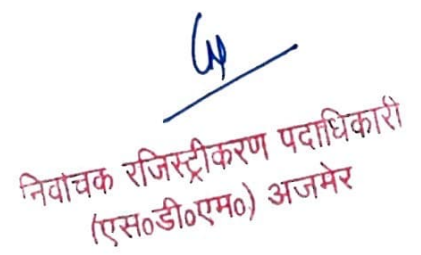 निर्वाचक रजिस्ट्रीकरण पदाधिकारी
(एस०डी०एम०) अजमेर